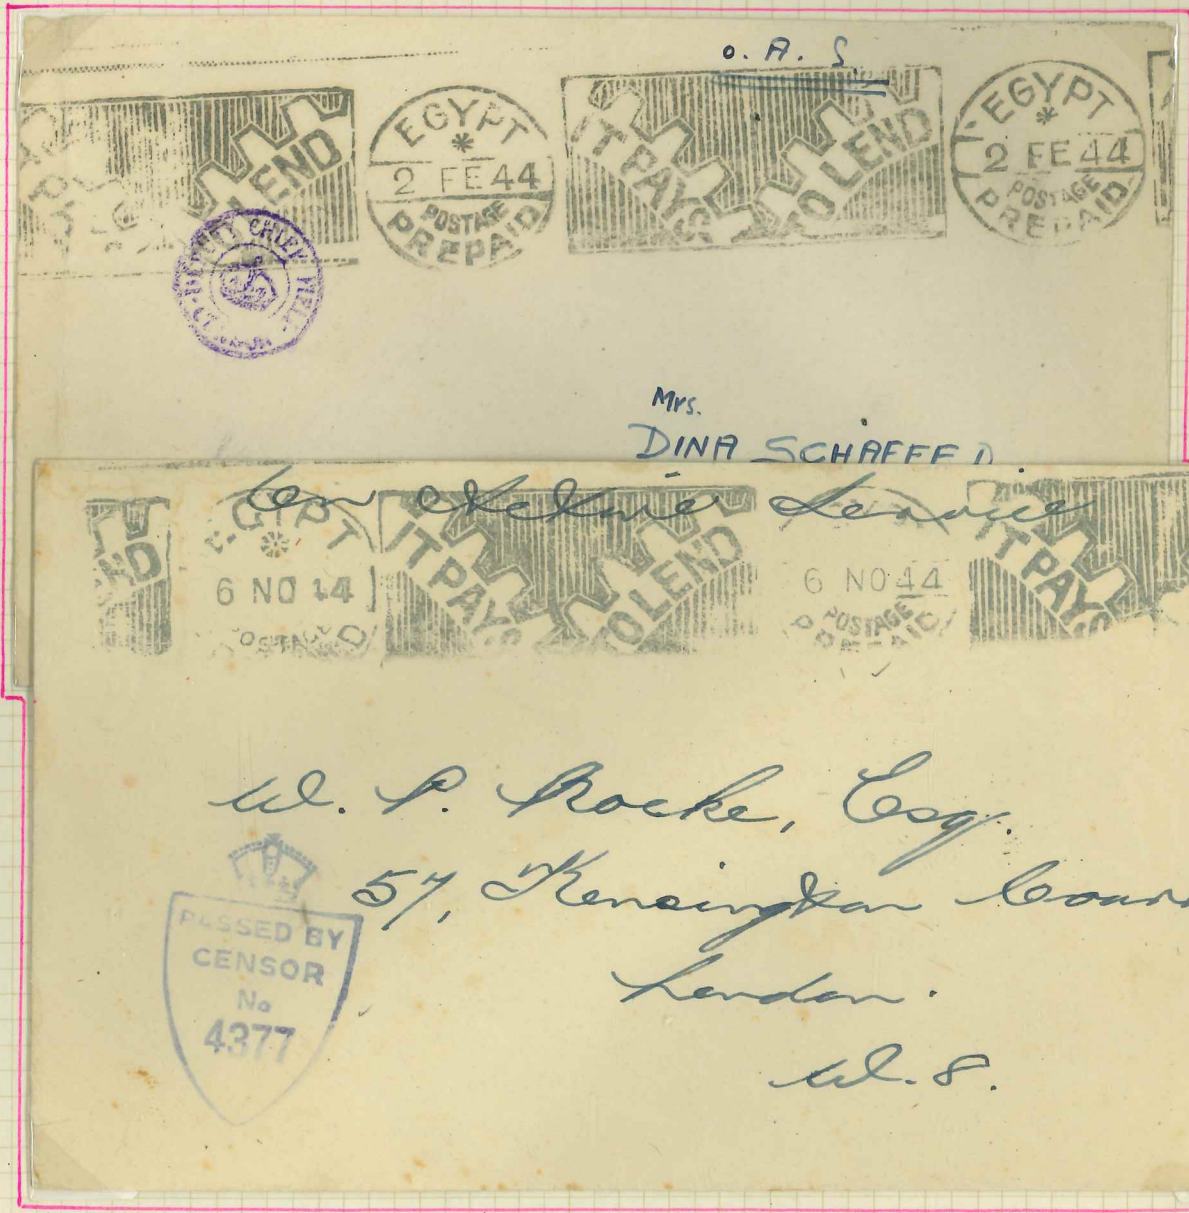 O. A. S.
LEND
EGYPT
2 FE 44
POSTAGE
PREPAID
IT PAYS TO LEND
EGYPT
2 FE 44
POSTAGE
PREPAID
DEPUTY CHIEF
Mrs.
DINA SCHAFFE
On Active Service
END
EGYPT
6 NO 44
POSTAGE
IT PAYS TO LEND
6 NO 44
POSTAGE
PREPAID
IT PAYS
W. P. Rocke, Esq.
57, Kensington Cour
London.
W. 8.
PASSED BY
CENSOR
No
4377